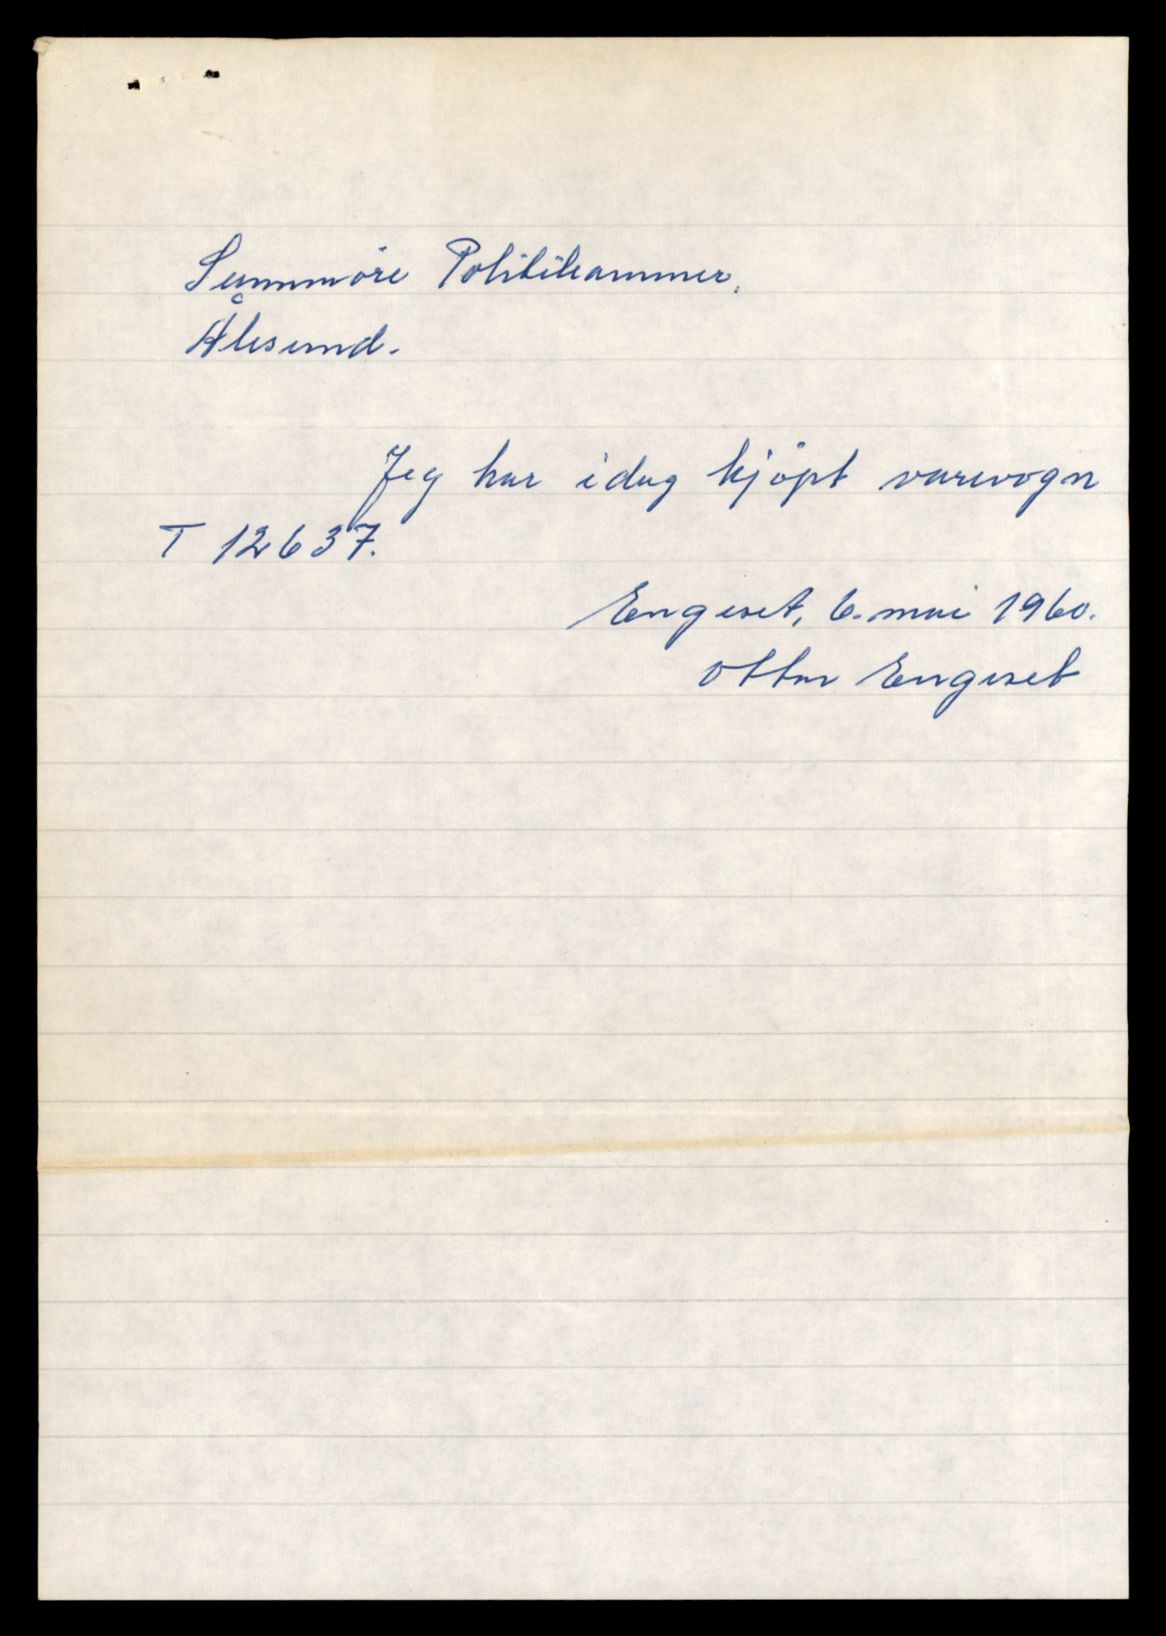 Sunnmöre Politikammer,
Ålesund.
Jeg har idag kjöpt varevogn
T 12637.
Engeset, 6. mai 1960.
Ottar Engeset